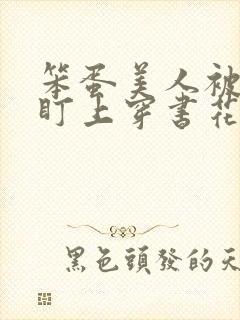 笨蛋美人被
盯上穿書花
黑色頭發的天